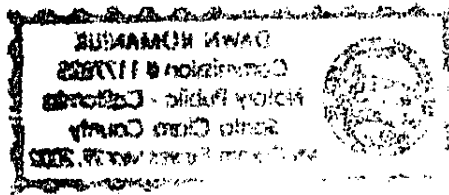 DAWN ROMANIUK
Commission #
Notary Public - California
Santa Clara County
My Comm. Expires 2002